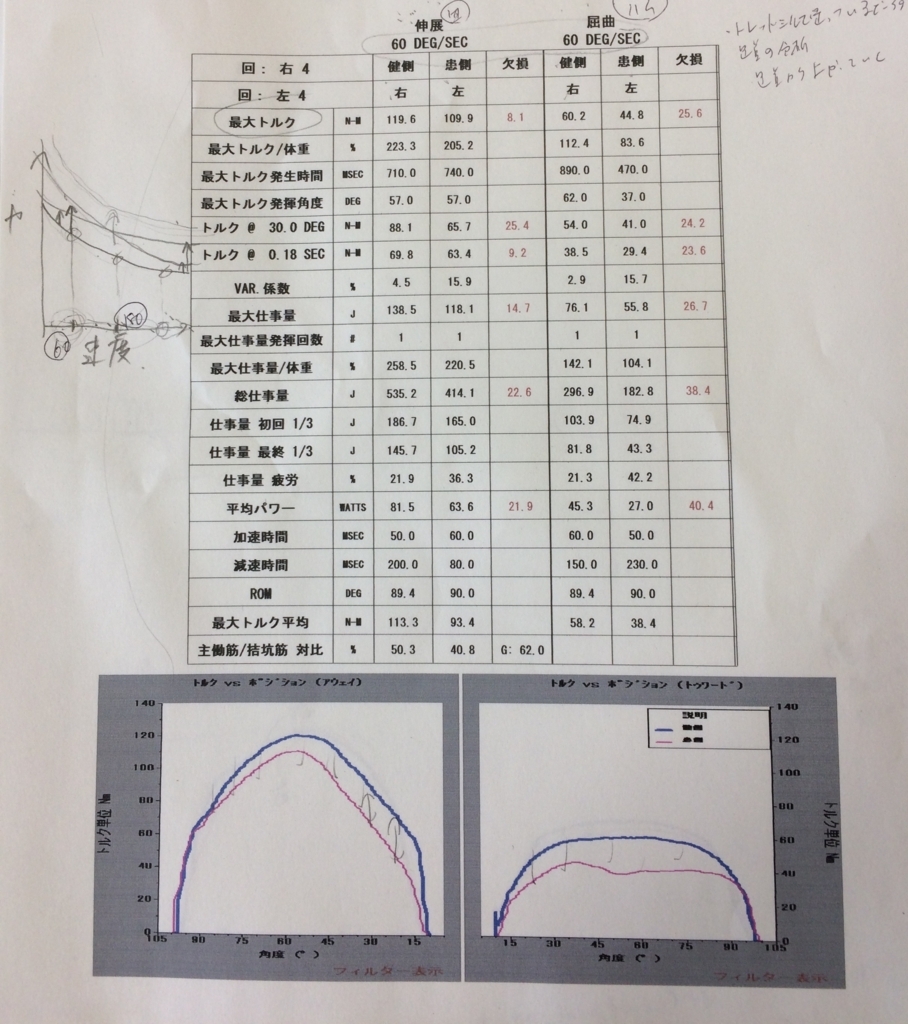 伸展 屈曲 ハム
60 DEG/SEC 60 DEG/SEC
回: 右 4 健側 患側 欠損 健側 患側 欠損
回: 左 4 右 左 右 左
最大トルク N-M 119.6 109.9 8.1 60.2 44.8 25.6
最大トルク/体重 % 223.3 205.2 112.4 83.6
最大トルク発生時間 MSEC 710.0 740.0 890.0 470.0
最大トルク発揮角度 DEG 57.0 57.0 62.0 37.0
トルク @ 30.0 DEG N-M 88.1 65.7 25.4 54.0 41.0 24.2
トルク @ 0.18 SEC N-M 69.8 63.4 9.2 38.5 29.4 23.6
VAR.係数 % 4.5 15.9 2.9 15.7
最大仕事量 J 138.5 118.1 14.7 76.1 55.8 26.7
最大仕事量発揮回数 # 1 1 1 1
最大仕事量/体重 % 258.5 220.5 142.1 104.1
総仕事量 J 535.2 414.1 22.6 296.9 182.8 38.4
仕事量 初回 1/3 J 186.7 165.0 103.9 74.9
仕事量 最終 1/3 J 145.7 105.2 81.8 43.3
仕事量 疲労 % 21.9 36.3 21.3 42.2
平均パワー WATTS 81.5 63.6 21.9 45.3 27.0 40.4
加速時間 MSEC 50.0 60.0 60.0 50.0
減速時間 MSEC 200.0 80.0 150.0 230.0
ROM DEG 89.4 90.0 89.4 90.0
最大トルク平均 N-M 113.3 93.4 58.2 38.4
主働筋/拮抗筋 対比 % 50.3 40.8 G: 62.0
力
60 180
速度
トルク vs ポジション (アウェイ)
140
120
100
80
60
40
20
0
トルク単位 Nm
105 90 75 60 45 30 15
角度 (°)
フィルター表示
トルク vs ポジション (トゥワード)
説明
健側
患側
140
120
100
80
60
40
20
0
トルク単位 Nm
15 30 45 60 75 90 105
角度 (°)
フィルター表示